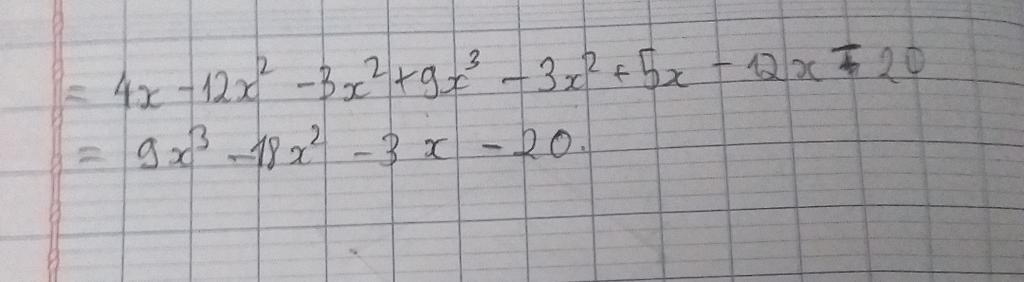 = 4x - 12x² - 3x² + 9x³ - 3x² + 5x - 12x - 20
= 9x³ - 18x² - 3x - 20.